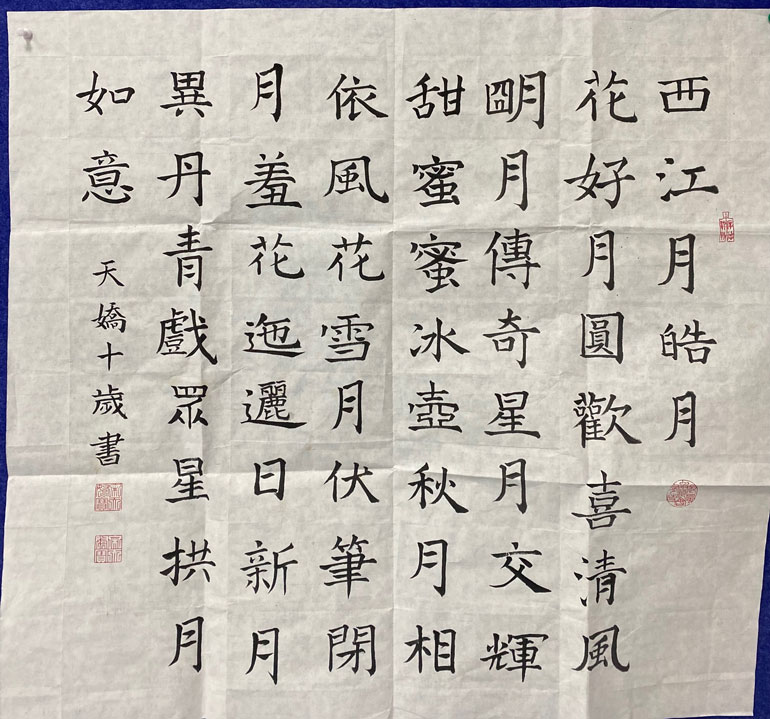 西江月皓月
花好月圓歡喜清風
朙月傳奇星月交輝
甜蜜蜜冰壺秋月相
依風花雪月伏筆閉
月羞花迤邐日新月
異丹青戲眾星拱月
如意
天嬌十歲書